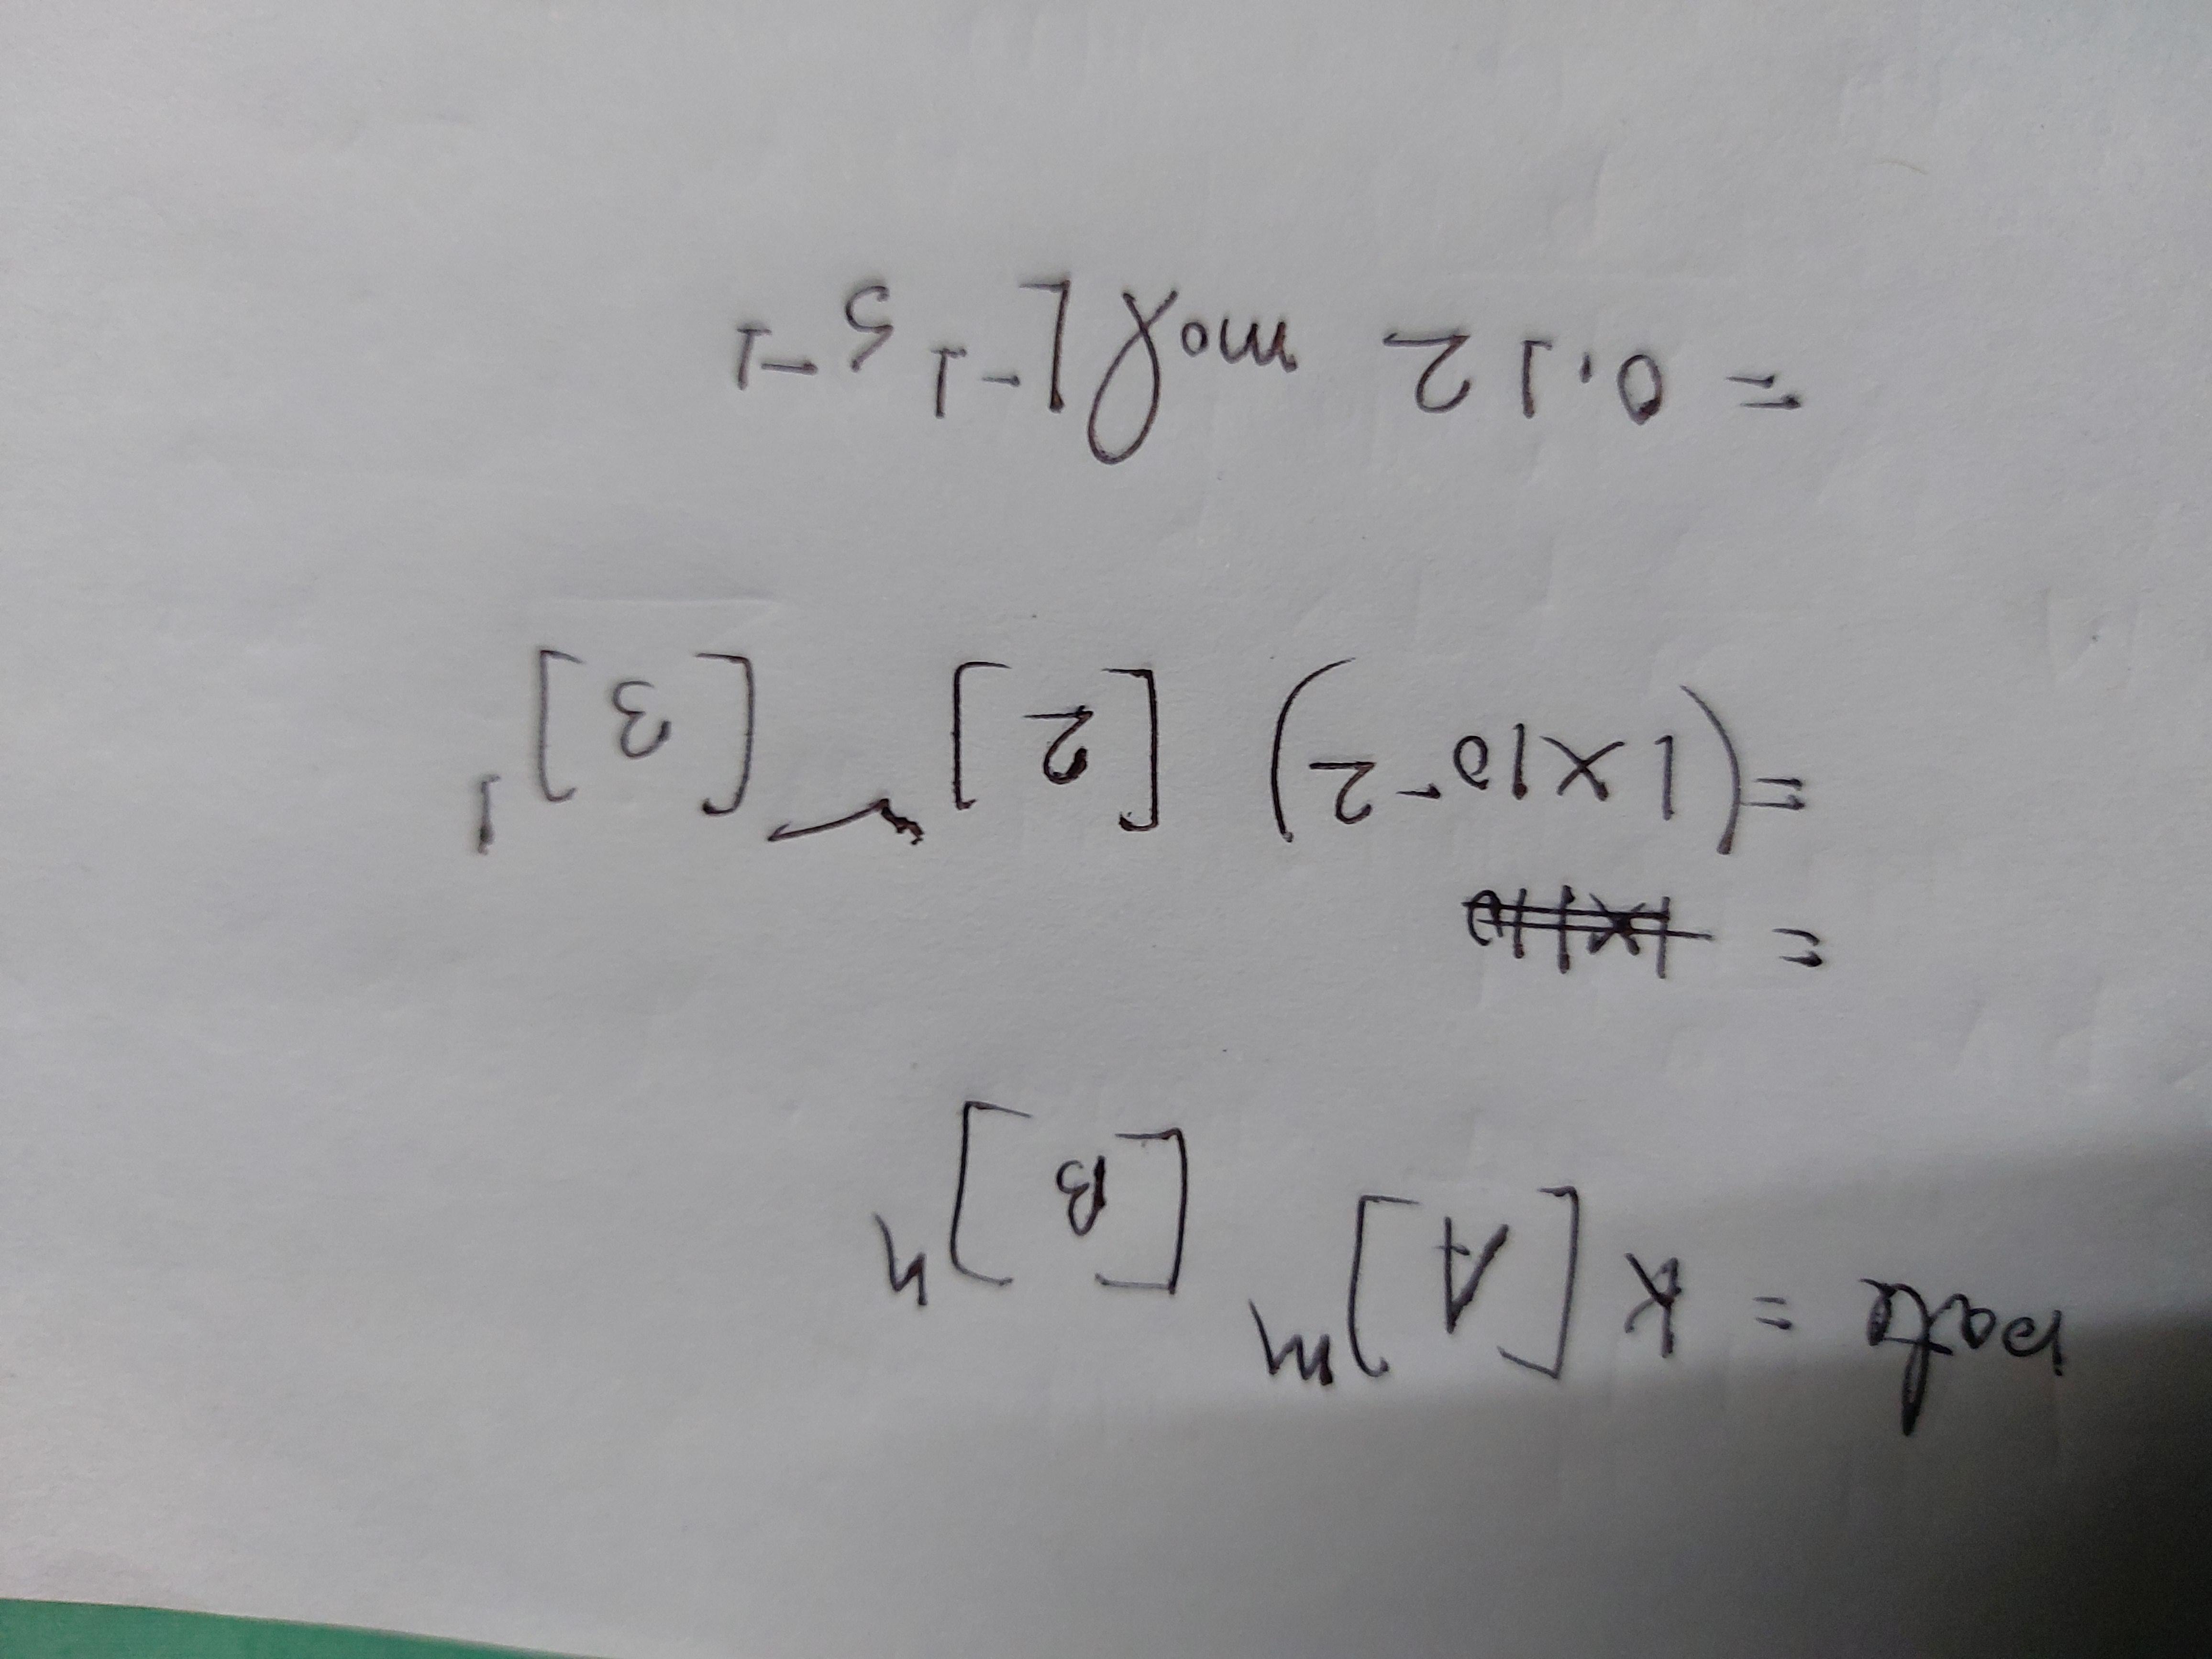 rate = K[A]ᵐ [B]ⁿ
=
=(1×10⁻²) [2]² [3]¹
= 0.12 mol L⁻¹ s⁻¹